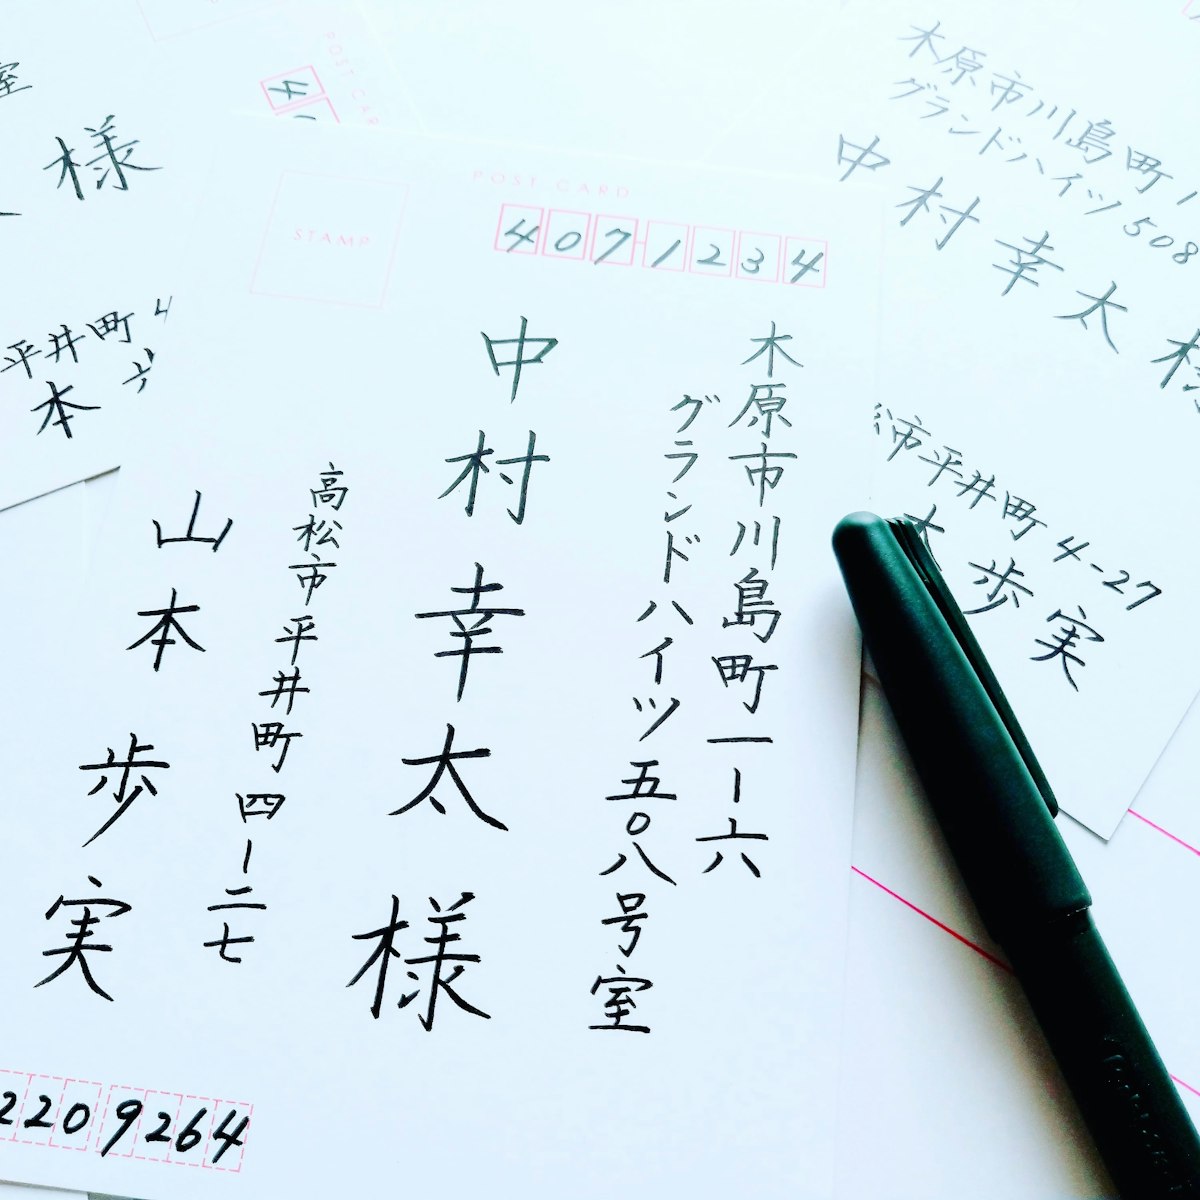 POST CARD
STAMP
4071234
木原市川島町一ー六
グランドハイツ五〇八号室
中村幸太様
高松市平井町四ー二七
山本歩実
2209264
木原市川島町1
グランドハイツ508
中村幸太様
市平井町4-27
本歩実
室
様
平井町4
本歩
POST CARD
4